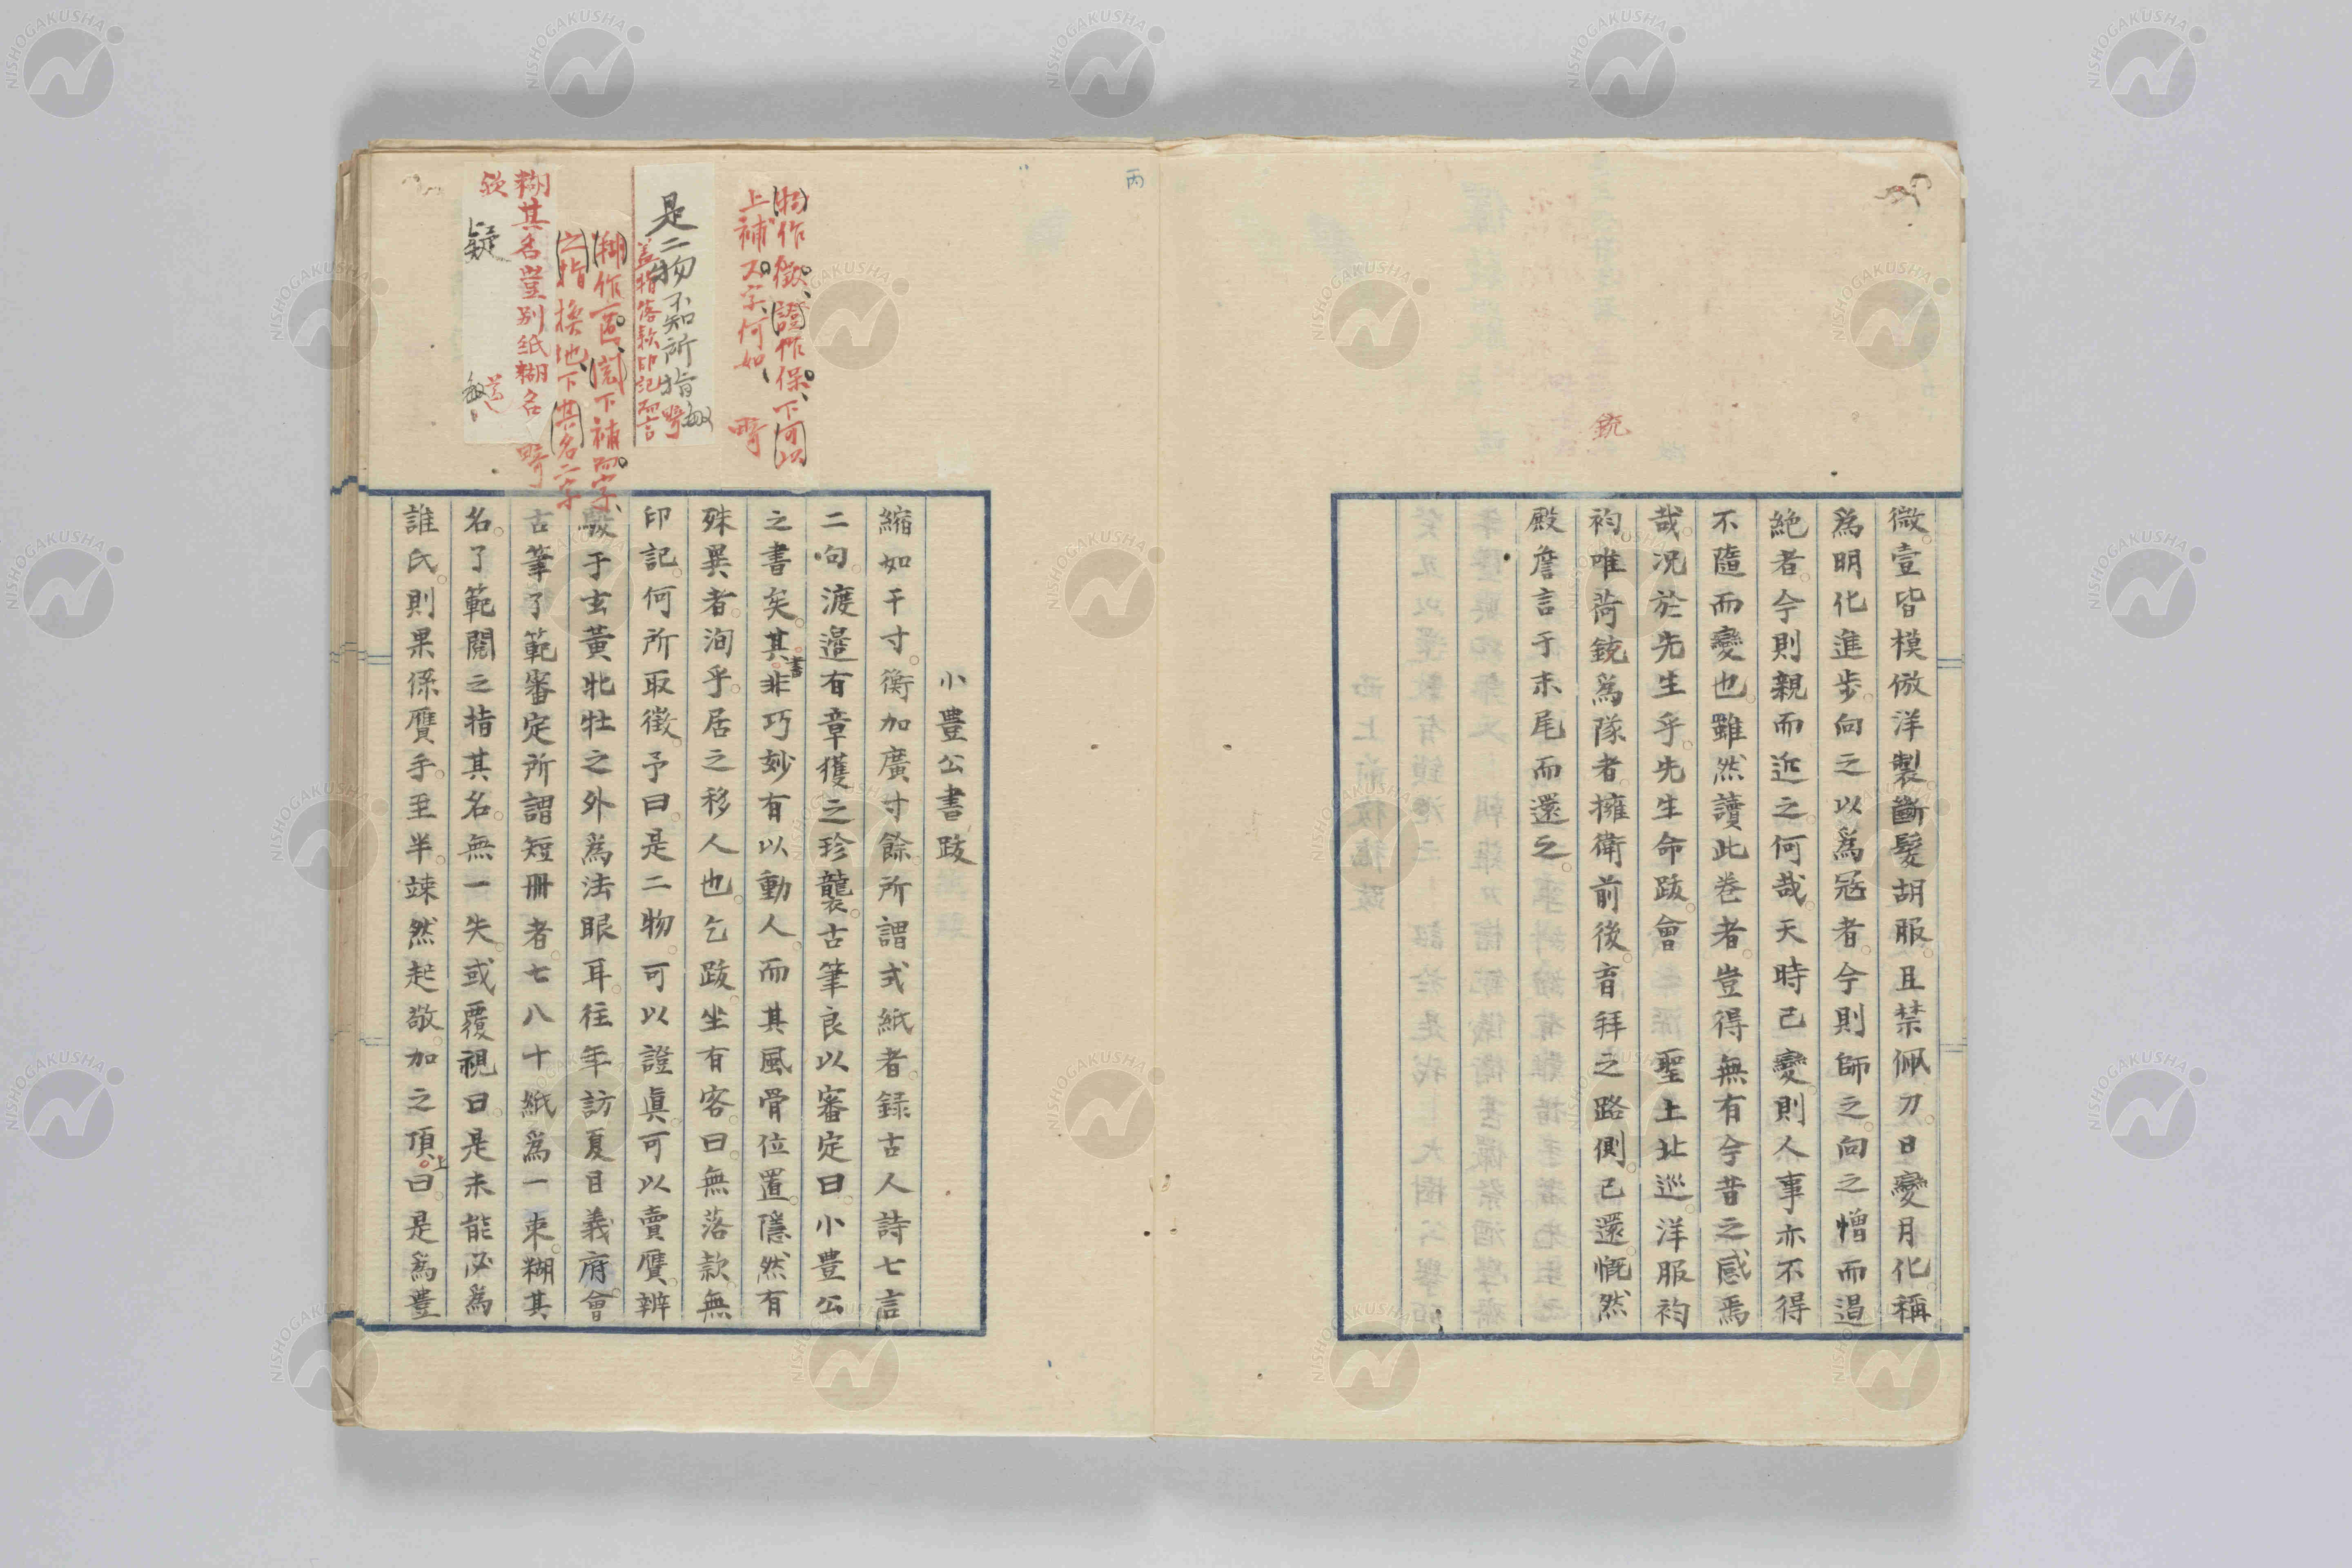 微壹皆模倣洋製斷髮胡服且禁佩刀日變月化稱
爲明化進步向之以爲冦者今則師之向之憎而過
絶者今則親而近之何哉天時已變則人事亦不得
不隨而變也雖然讀此卷者豈得無有今昔之感焉
哉况於先生乎先生命跋會 聖上北巡洋服袀
袀唯荷銃爲隊者擁衛前後盲拜之路側已還慨然
殿詹言于末尾而還之
銃
丙
小豊公書跋
縮如干寸衡加廣寸餘所謂式紙者録古人詩七言
二句渡邉有章獲之珍襲古筆良以審定曰小豊公
之書矣其書非巧妙有以動人而其風骨位置隱然有
殊異者洵乎居之移人也乞跋坐有客曰無落款無
印記何所取徵予曰是二物可以證眞可以賣贋辨
駿于玄黃牝牡之外爲法眼耳往年訪夏目義府會
古筆了範審定所謂短冊者七八十紙爲一束糊其
名了範閲之指其名無一失或覆視曰是未能必爲
誰氏則果係贋手至半竦然起敬加之頂上曰是爲豊
物作徵證作保下可以
上補不字何如 畸
是二物不知所指 敏
蓋指落款印記而言 畸
糊作匿閲下補而字
之指換他下其名二字
糊其名豈別紙糊名 畸
欤
疑 敏
NISHOGAKUSHA